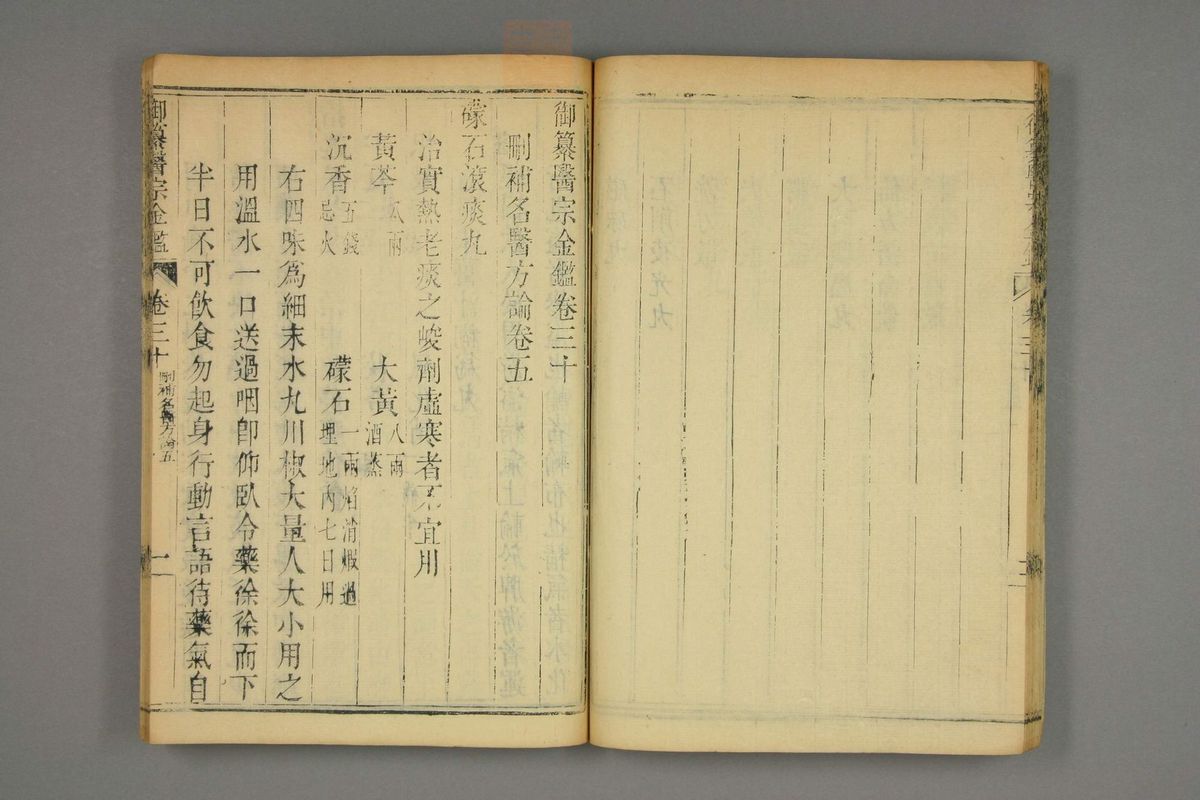 御纂醫宗金鑑卷三十
刪補名醫方論卷五
礞石滾痰丸
治實熱老痰之峻劑虛寒者不宜用
黃芩八兩 大黃八兩酒蒸
沉香五錢忌火 礞石一兩焰消煆過埋地內七日用
右四味爲細末水丸川椒大量人大小用之
用溫水一口送過咽卽仰臥令藥徐徐而下
半日不可飮食勿起身行動言語待藥氣自
御纂醫宗金鑑 卷三十 刪補名醫方論五 一